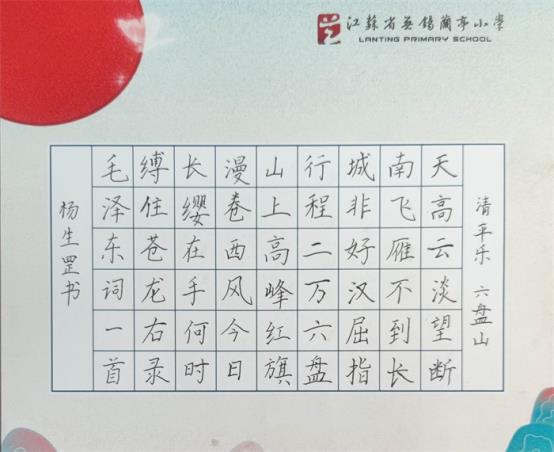 江蘇省無錫蘭亭小學
LANTING PRIMARY SCHOOL
清平乐 六盘山
天高云淡望断
南飞雁不到长
城非好汉屈指
行程二万六盘
山上高峰红旗
漫卷西风今日
长缨在手何时
缚住苍龙右录
毛泽东词一首
杨生罡书